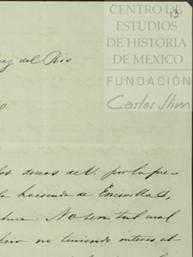 13
CENTRO DE
ESTUDIOS
DE HISTORIA
DE MEXICO
FUNDACIÓN
Carlos Slim
del Rio
los deseos de V. por la pre-
la hacienda de Encinillas,
No sera tal mal
pero no teniendo interes al